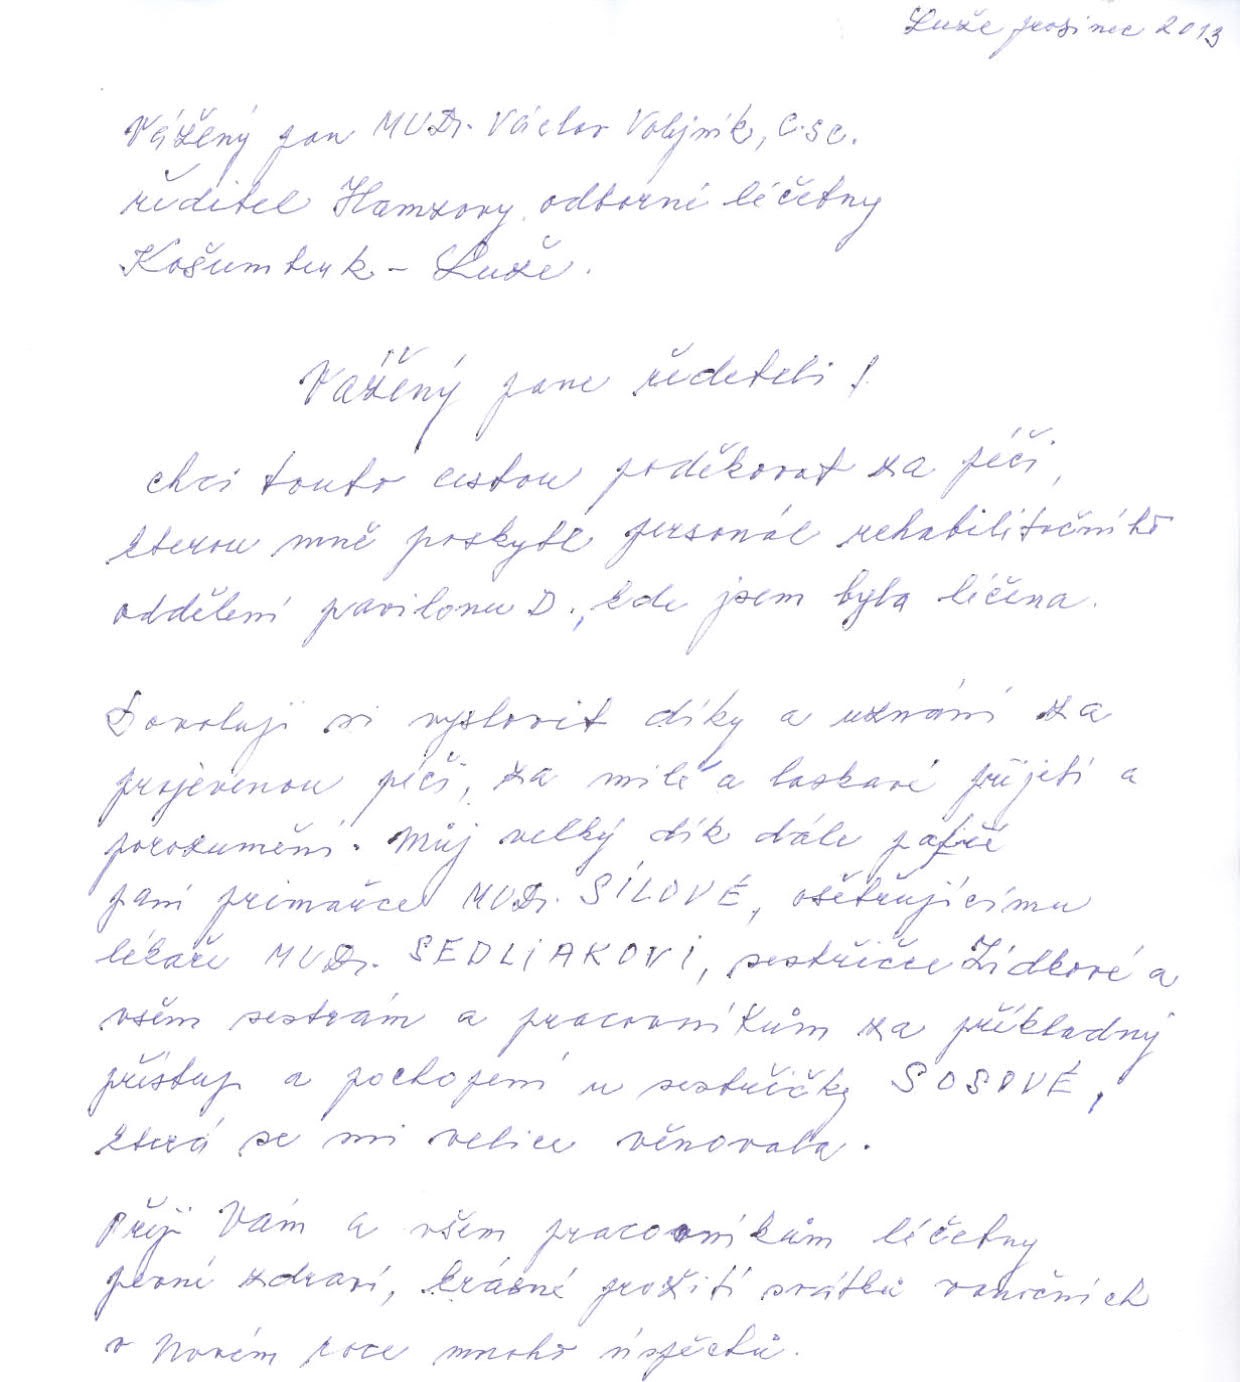 Luže prosinec 2013
Vážený pan MUDr. Václav Volejník, C.sc.
ředitel Hamzovy odborné léčebny
Košumberk – Luže.
Vážený pane řediteli!
chci touto cestou poděkovat za péči,
kterou mně poskytl personál rehabilitačního
oddělení pavilonu D., kde jsem byla léčena.
Dovoluji si vyslovit díky a uznání za
projevenou péči, za milé a laskavé přijetí a
porozumění. Můj velký dík dále patří
paní primářce MUDr. SÍLOVÉ, ošetřujícímu
lékaři MUDr. SEDLIAKOVI, sestřičce Zídkové a
všem sestrám a pracovníkům za příkladný
přístup a pochopení u sestřičky SOSOVÉ,
která se mi velice věnovala.
Přeji Vám a všem pracovníkům léčebny
pevné zdraví, krásné prožití svátků vánočních
v Novém roce mnoho úspěchů.